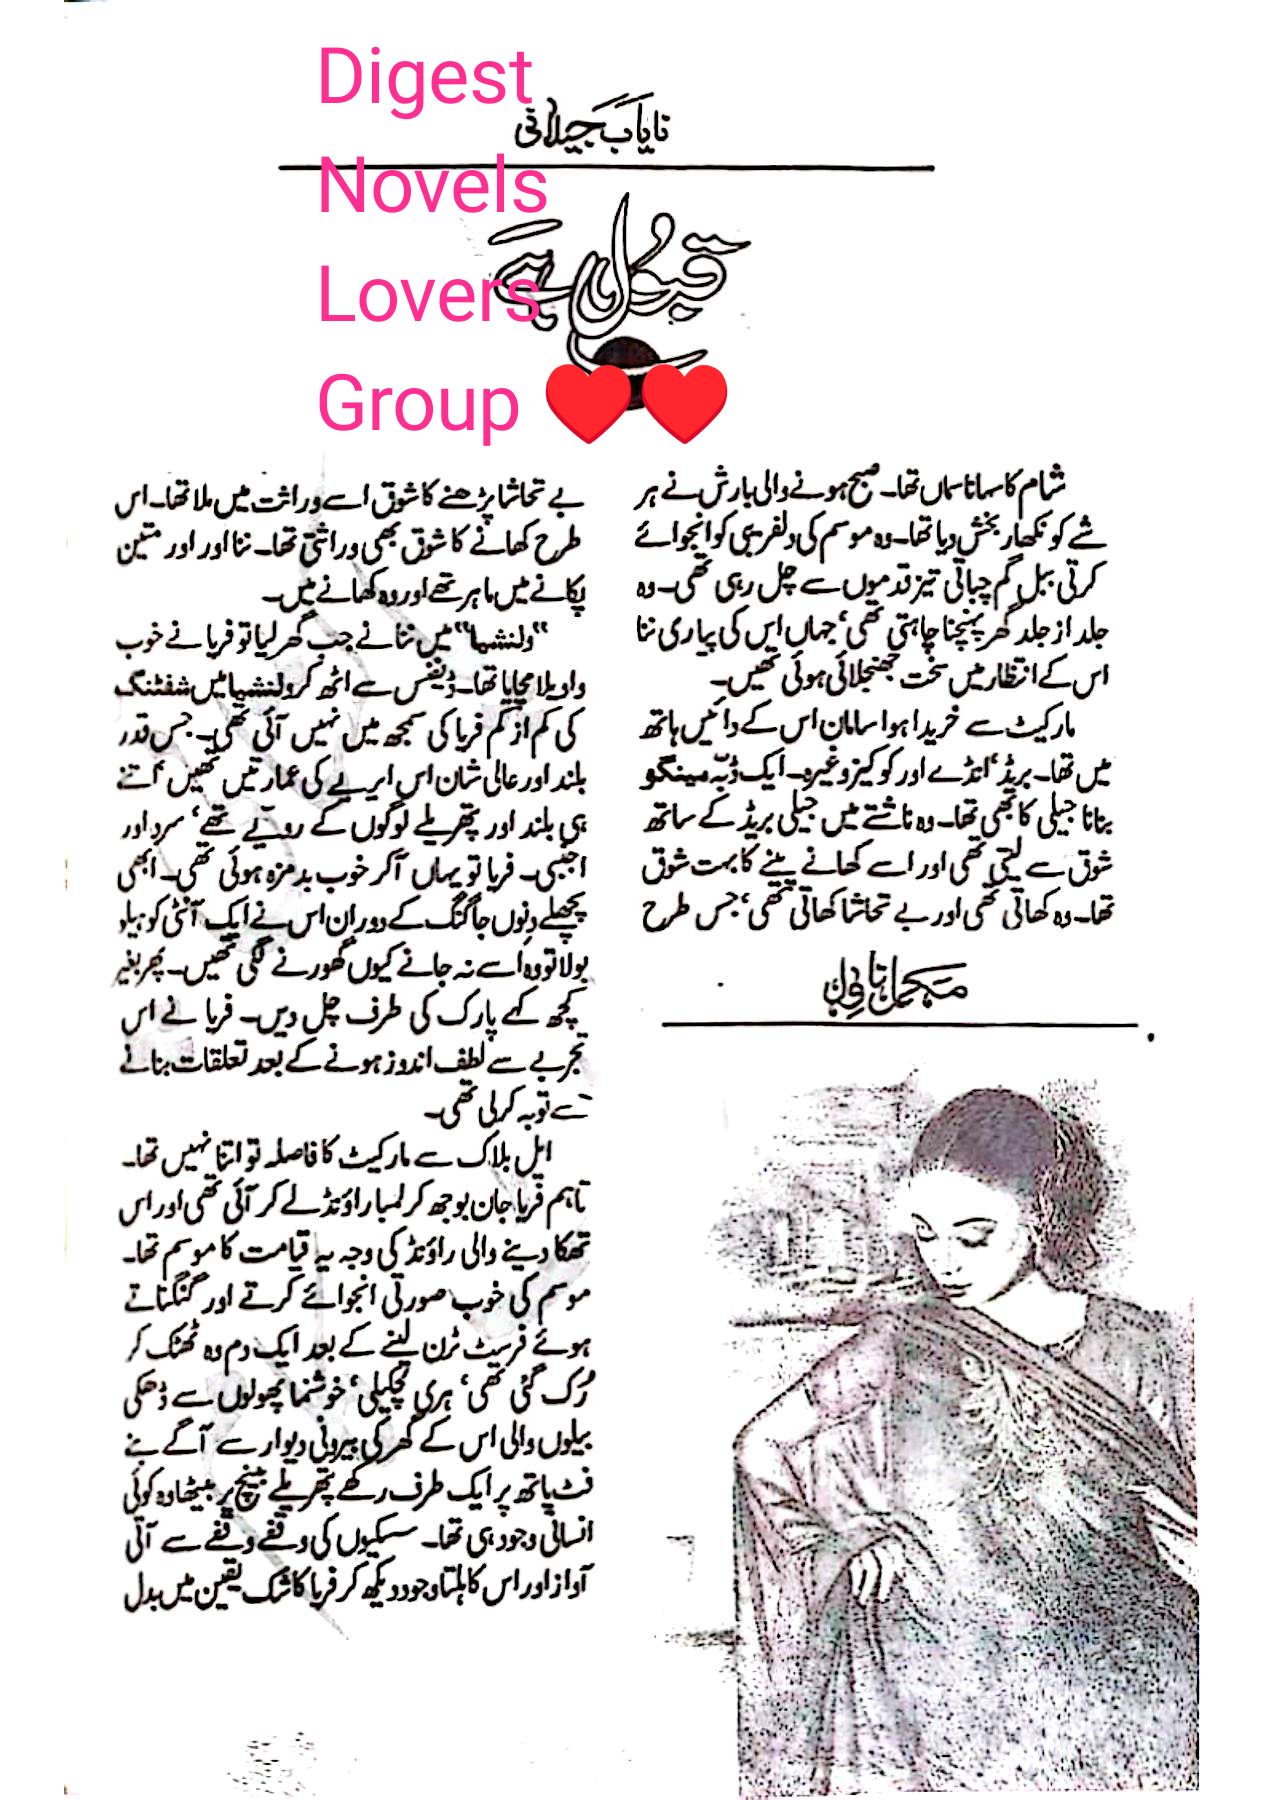 Digest
Novels
Lovers
Group ♥️♥️
نایاب جیلانی
قبول ہے
شام کا سہانا سماں تھا۔ صبح ہونے والی بارش نے ہر
شے کو نکھار بخش دیا تھا۔ وہ موسم کی دلفریبی کو انجوائے
کرتی ببل گم چباتی تیز قدموں سے چل رہی تھی۔ وہ
جلد از جلد گھر پہنچنا چاہتی تھی، جہاں اس کی پیاری ننا
اس کے انتظار میں سخت جھنجلائی ہوئی تھیں۔
مارکیٹ سے خریدا ہوا سامان اس کے دائیں ہاتھ
میں تھا۔ بریڈ، انڈے اور کوکیز وغیرہ۔ ایک ڈبہ مینگو
بنانا جیلی کا بھی تھا۔ وہ ناشتے میں جیلی بریڈ کے ساتھ
شوق سے لیتی تھی اور اسے کھانے پینے کا بہت شوق
تھا۔ وہ کھاتی تھی اور بے تحاشا کھاتی تھی، جس طرح
مکمل ناول
بے تحاشا پڑھنے کا شوق اسے وراثت میں ملا تھا۔ اس
طرح کھانے کا شوق بھی وراثتی تھا۔ ننا اور اور متین
پکانے میں ماہر تھے اور وہ کھانے میں۔
"ولنشیا" میں ننا نے جب گھر لیا تو فریا نے خوب
واویلا مچایا تھا۔ ڈیفنس سے اٹھ کر ولنشیا میں شفٹنگ
کی کم از کم فریا کی سمجھ میں نہیں آئی تھی۔ جس قدر
بلند اور عالی شان اس ایریے کی عمارتیں تھیں، اتنے
ہی بلند اور پتھریلے لوگوں کے رویے تھے، سرد اور
اجنبی۔ فریا تو یہاں آکر خوب بدمزہ ہوئی تھی۔ ابھی
پچھلے دنوں جاگنگ کے دوران اس نے ایک آنٹی کو ہیلو
بولا تو وہ اسے نہ جانے کیوں گھورنے لگی تھیں۔ پھر بغیر
کچھ کہے پارک کی طرف چل دیں۔ فریا نے اس
تجربے سے لطف اندوز ہونے کے بعد تعلقات بنانے
سے توبہ کرلی تھی۔
ایل بلاک سے مارکیٹ کا فاصلہ تو اتنا نہیں تھا۔
تاہم فریا جان بوجھ کر لمبا راؤنڈ لے کر آئی تھی اور اس
تھکا دینے والی راؤنڈ کی وجہ یہ قیامت کا موسم تھا۔
موسم کی خوب صورتی انجوائے کرتے اور گنگناتے
ہوئے فرسٹ ٹرن لینے کے بعد ایک دم وہ ٹھٹک کر
رک گئی تھی، ہری لچکیلی، خوشنما پھولوں سے ڈھکی
بیلوں والی اس کے گھر کی بیرونی دیوار سے آگے بنے
فٹ پاتھ پر ایک طرف رکھے پتھریلے بینچ پر بیٹھا وہ کوئی
انسانی وجود ہی تھا۔ سسکیوں کی وقفے وقفے سے آتی
آواز اور اس کا ہلتا وجود دیکھ کر فریا کا شک یقین میں بدل